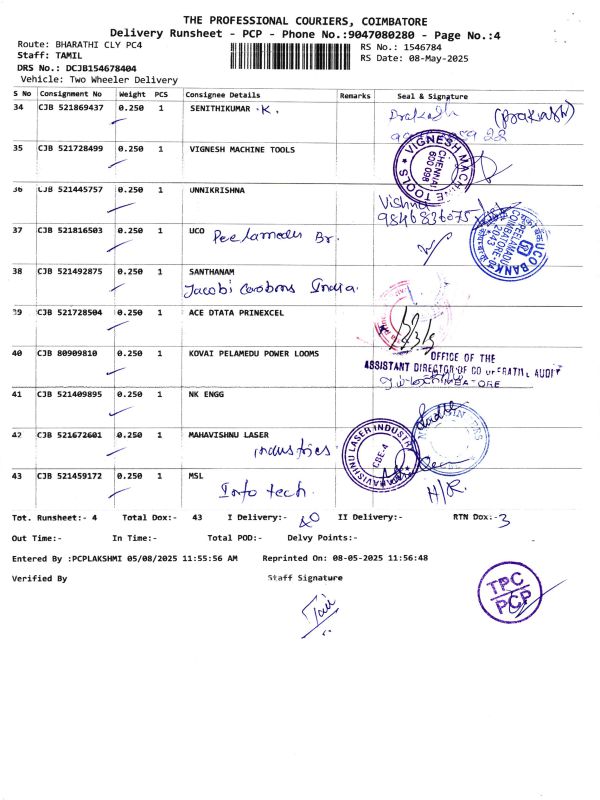 THE PROFESSIONAL COURIERS, COIMBATORE
Delivery Runsheet - PCP - Phone No.:9047080280 - Page No.:4
Route: BHARATHI CLY PC4
RS No.: 1546784
Staff: TAMIL
RS Date: 08-May-2025
DRS No.: DCJB154678404
Vehicle: Two Wheeler Delivery
S No Consignment No Weight PCS Consignee Details Remarks Seal & Signature
34 CJB 521869437 0.250 1 SENITHIKUMAR .K. Prakash (PRAKASH)
35 CJB 521728499 0.250 1 VIGNESH MACHINE TOOLS
VIGNESH MACHINE TOOLS
CHENNAI
600 098
36 CJB 521445757 0.250 1 UNNIKRISHNA
Vishnu
9846836075
37 CJB 521816503 0.250 1 UCO Peelamedu Br.
UCO BANK
PEELAMADU
COIMBATORE
2043
38 CJB 521492875 0.250 1 SANTHANAM
Jacobi Carbons India.
39 CJB 521728504 0.250 1 ACE DTATA PRINEXCEL
40 CJB 80909810 0.250 1 KOVAI PELAMEDU POWER LOOMS
OFFICE OF THE
ASSISTANT DIRECTOR OF CO OPERATIVE AUDIT
COIMBATORE
41 CJB 521409895 0.250 1 NK ENGG
42 CJB 521672601 0.250 1 MAHAVISHNU LASER
industries.
MAHAVISHNU LASER INDUSTRIES
CBE-4
43 CJB 521459172 0.250 1 MSL
Info tech.
H/R.
Tot. Runsheet:- 4 Total Dox:- 43 I Delivery:- 40 II Delivery:- RTN Dox:- 3
Out Time:- In Time:- Total POD:- Delvy Points:-
Entered By :PCPLAKSHMI 05/08/2025 11:55:56 AM Reprinted On: 08-05-2025 11:56:48
Verified By Staff Signature
TPC
PCP